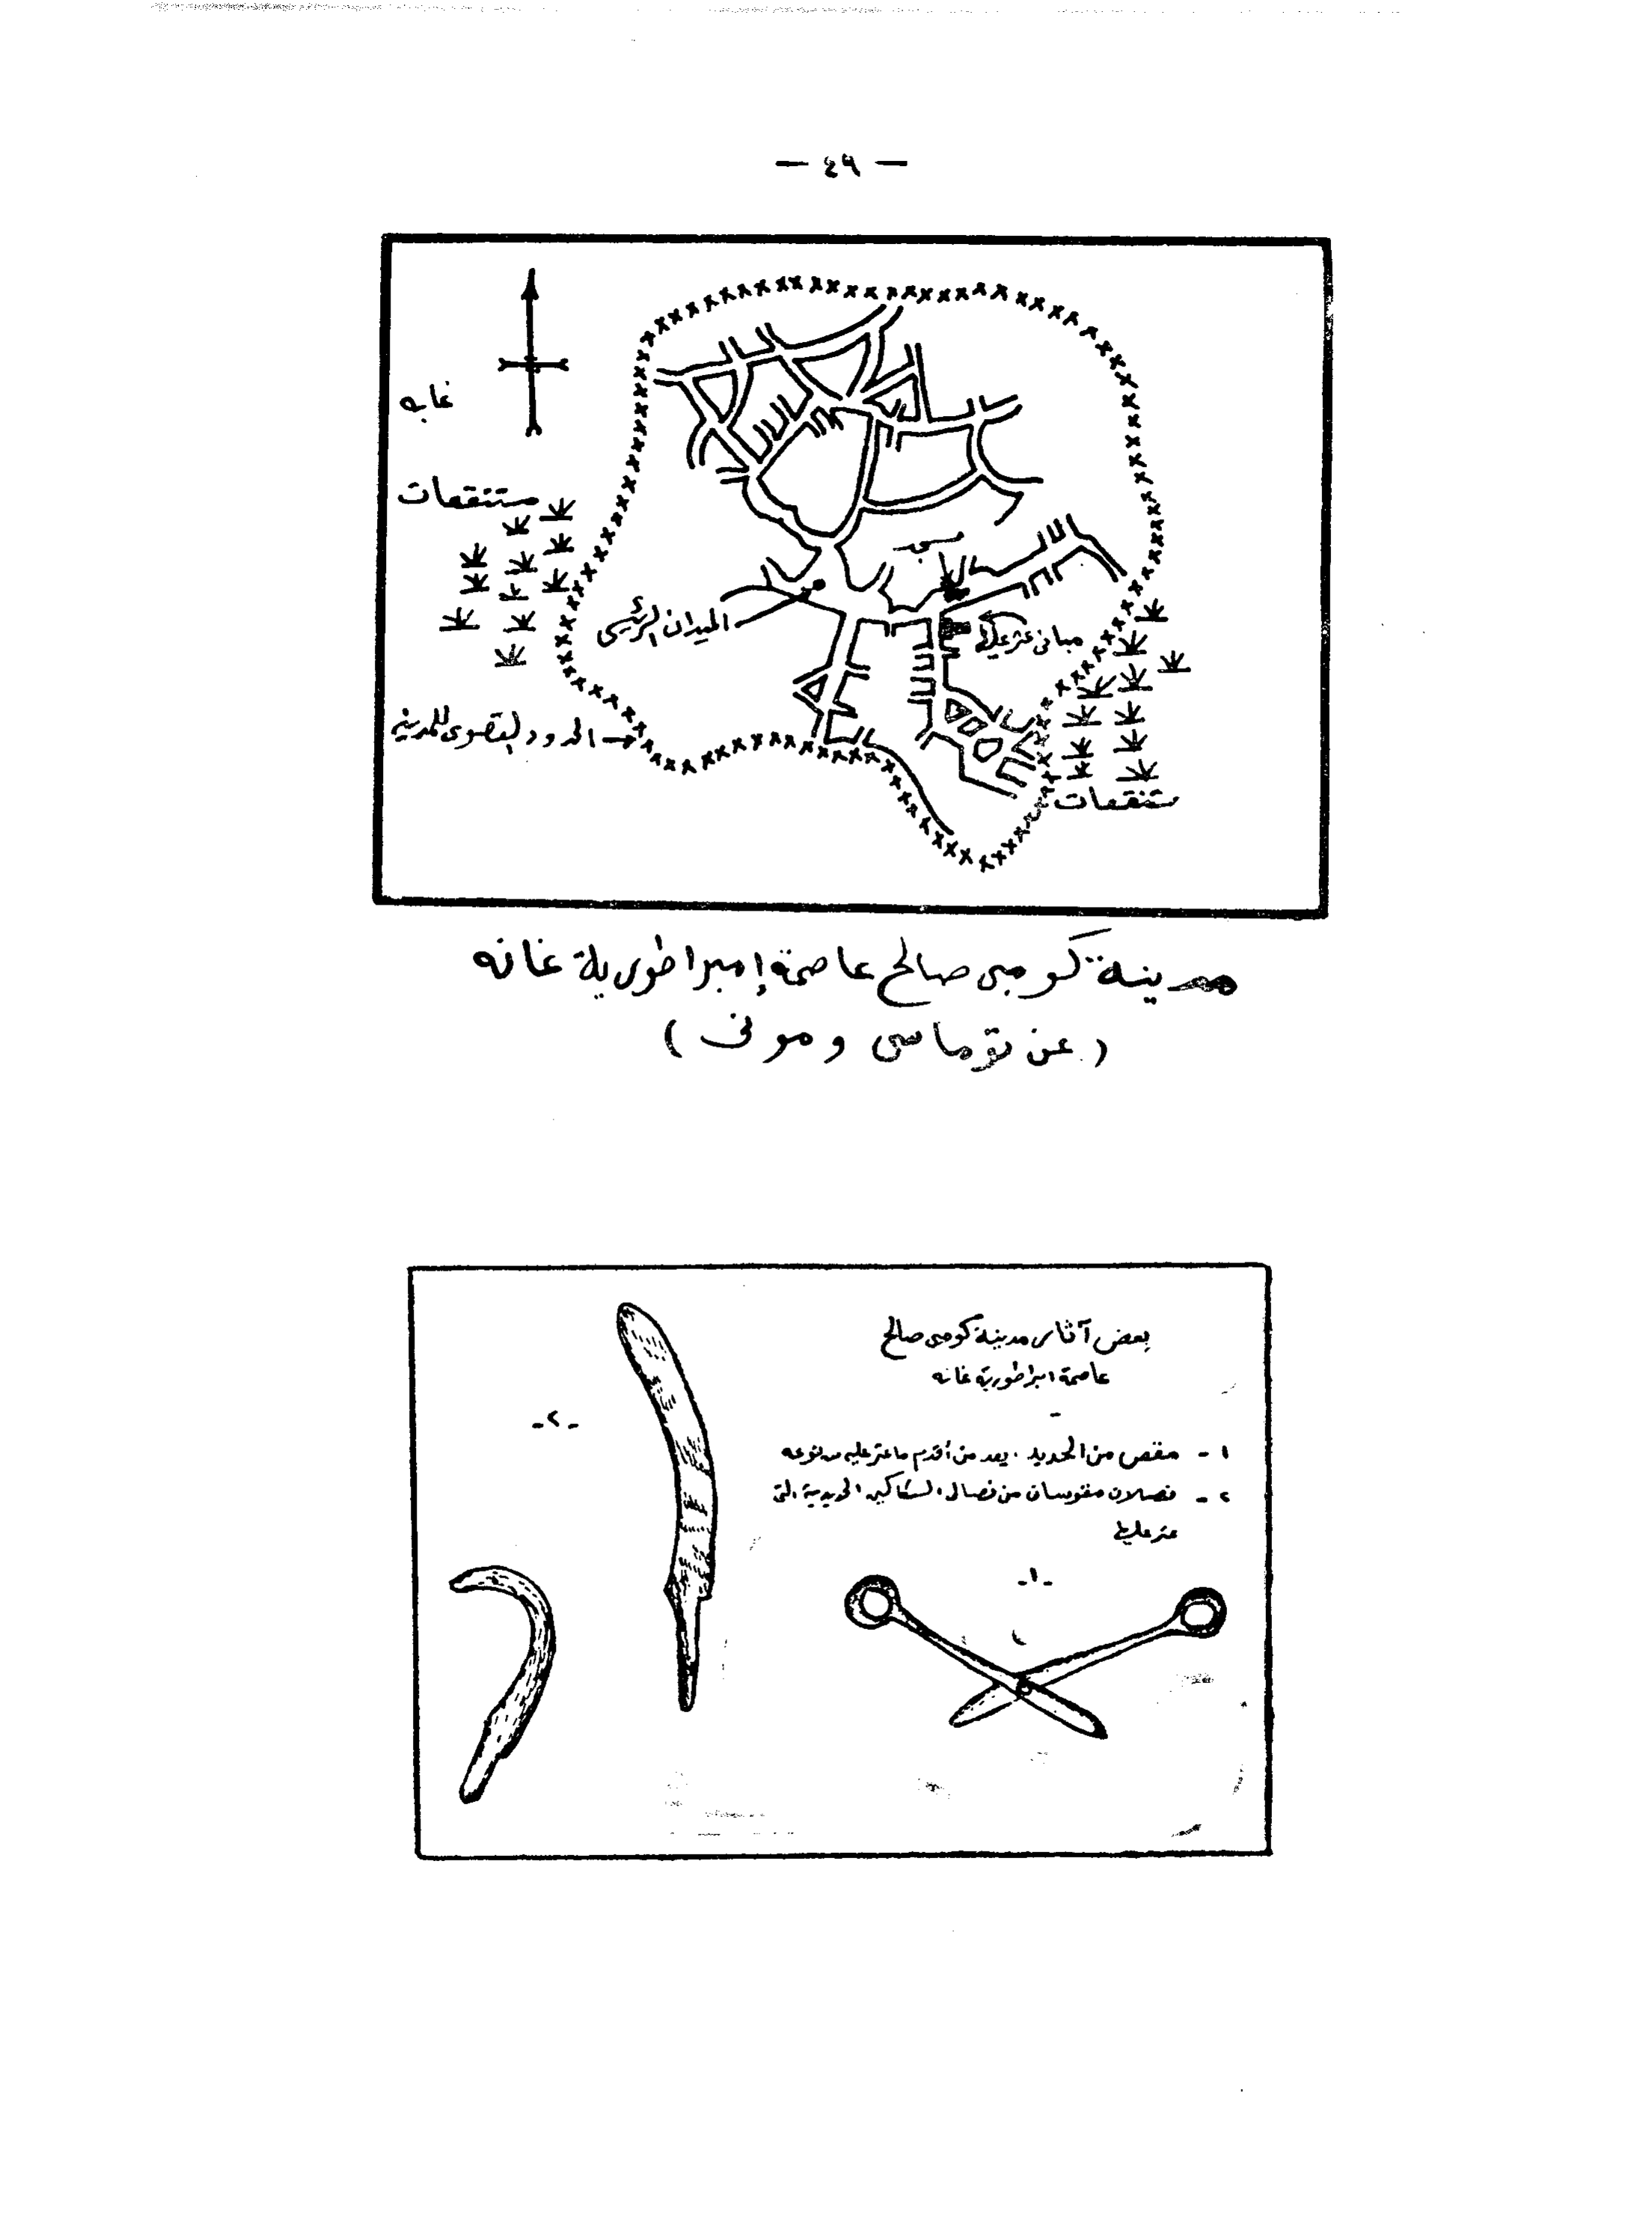 — ٤٩ —
غابه
مستنقعات
مسجد
الميدان الرئيسى
مبانى عثر عليها
الحدود القصوى للمدينه
مستنقعات
مدينة كومبى صالح عاصمة إمبراطورية غانه
( عن توماسى ومونى )
بعض آثار مدينة كومبى صالح
عاصمة امبراطورية غانه
١ - مقص من الحديد . يعد من أقدم ما عثر عليه من نوعه
٢ - نصلان مقوسان من نصال السكاكين الحديدية التى
عثر عليها
- ٢ -
- ١ -